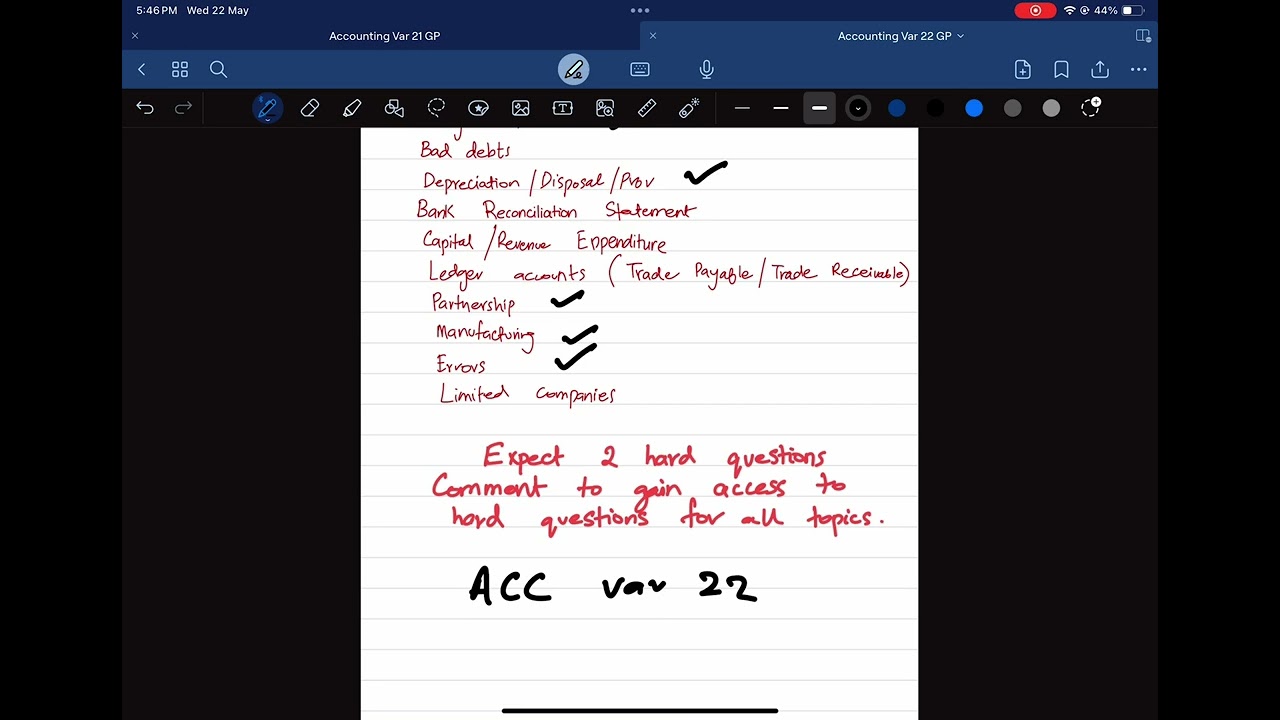 5:46 PM Wed 22 May
44%
Accounting Var 21 GP
Accounting Var 22 GP
Bad debts
Depreciation / Disposal / Prov
Bank Reconciliation Statement
Capital / Revenue Expenditure
Ledger accounts ( Trade Payable / Trade Receivable)
Partnership
Manufacturing
Errors
Limited companies
Expect 2 hard questions
Comment to gain access to
hard questions for all topics.
ACC var 22